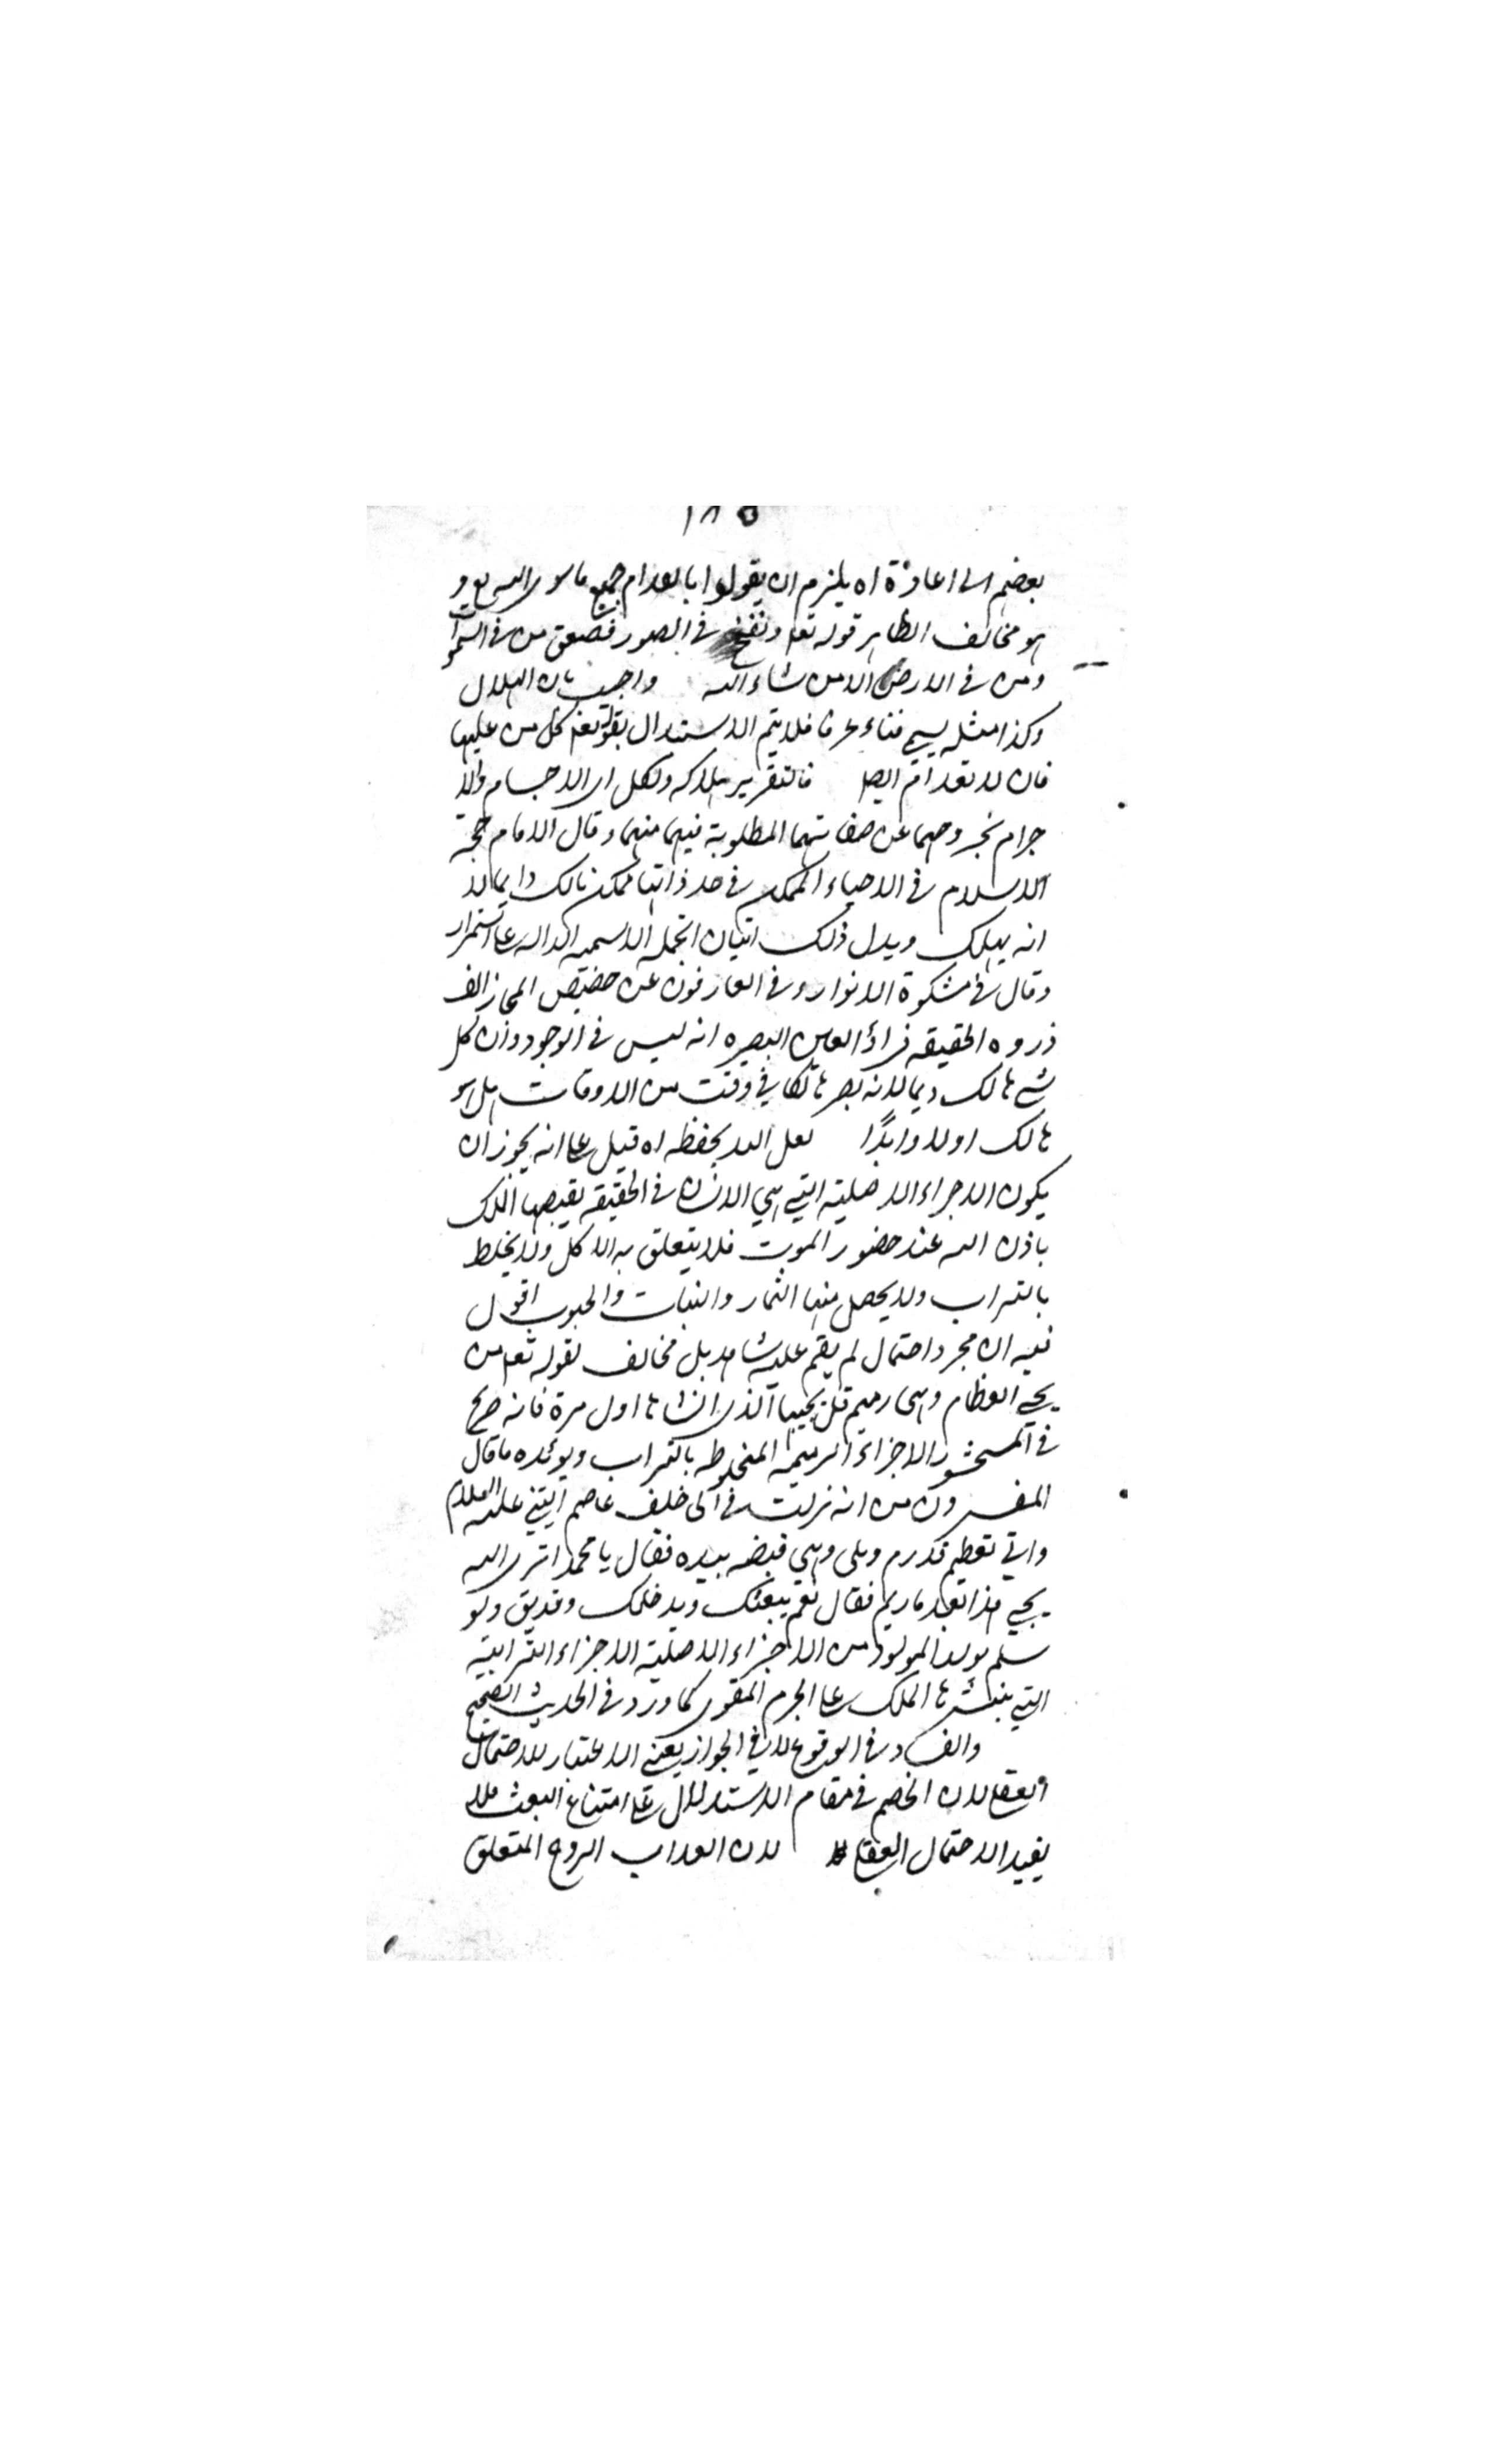 ١٨٥
بعضهم الى اعادة اه يلزم ان يقولوا بانعدام جميع ما سوى الله تع و
هو مخالف الظاهر قوله تعا ونفخ في الصور فصعق من في السموات
ومن في الارض الا من شاء الله واجيب بان الهلاك
وكذا مثله يسمى فناء عرفا فلا يتم الاستدلال بقوله تع كل من عليها
فان لانعدام ايضا فالتقرير هلاكه ولكل اي الاجسام والا
جرام بخروجهما عن صفاتهما المطلوبة فيهما منهما وقال الامام حجة
الاسلام في الاحياء الممكن في حد ذاتها ممكن هالك دايما لا
انه يهلك ويدل ذلك اتيان الجملة الاسمية الدالة على استمرار
وقال في مشكوة الانوار في العارفون عن حضيض المجاز الف
ذروه الحقيقه فراؤ العين البصيره انه ليس في الوجود وان كل
شي هالك ديما لا نه بصر هالكا في وقت من الاوقات بل هو
هالك اولا وابدًا لعل الله يحفظه اه قيل على انه يجوز ان
يكون الاجزاء الاصلية التي هي الانسان في الحقيقه يقبضها الملك
باذن الله عند حضور الموت فلا يتعلق به الاكل ولا يخلط
بالتراب ولا يحصل منها الثمار والنبات والحبوب اقول
فيه ان مجرد احتمال لم يقم عليه شاهد بل مخالف لقوله تعم من
يحيي العظام وهى رميم قل يحييها الذي انشاها اول مرة فانه صريح
في المحشور الاجزاء الرميمه المخلوطه بالتراب ويؤيده ما قال
المفسرون من انه نزلت في ابى خلف خاصم النبي عليه السلام
واتي بعظيم قد رم وبلى وهي قبضه بيده فقال يا محمد اترى الله
يحيي هذا بعد ما ريم فقال نعم يبعثك ويدخلك وقديق ولو
سلم يولد المولود من الاجزاء الاصلية الاجزاء الترابية
التي ينشرها الملك على الجرم المقور كما ورد في الحديث الصحيح
والفساد في الوقوع لا في الجواز يعني الاعتبار للاحتمال
العقلي لان الخصم في مقام الاستدلال على امتناع البعث فلا
يفيد الاحتمال العقلي لان العذاب الروح المتعلق